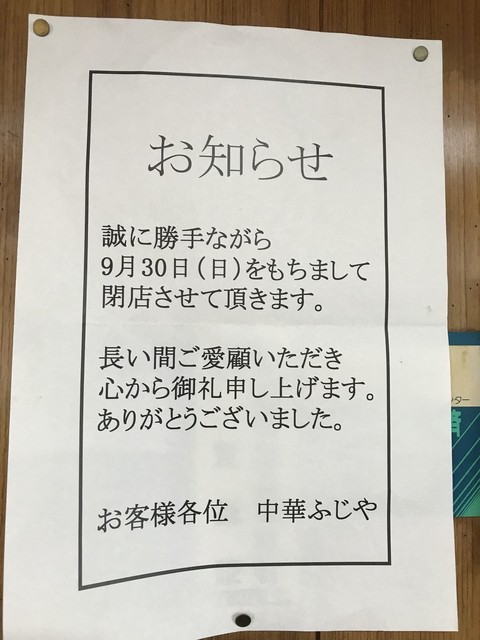 お知らせ
誠に勝手ながら
9月30日(日)をもちまして
閉店させて頂きます。
長い間ご愛顧いただき
心から御礼申し上げます。
ありがとうございました。
お客様各位　中華ふじや